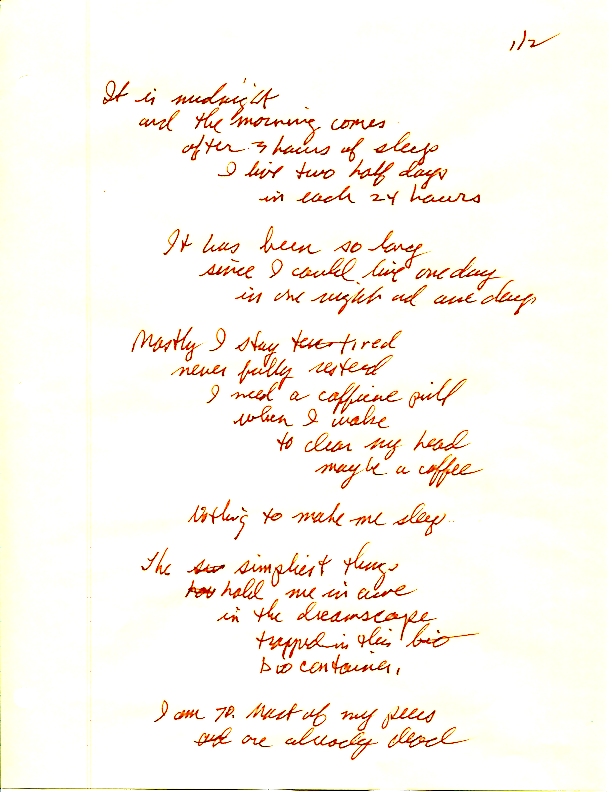 1/2
It is midnight
and the morning comes
after 3 hours of sleep
I live two half days
in each 24 hours
It has been so long
since I could live one day
in one night and one day
Mostly I stay tired
never fully rested
I need a caffeine pill
when I wake
to clear my head
maybe a coffee
Nothing to make me sleep.
The simpliest things
hold me in awe
in the dreamscape
trapped in this bio
bio container.
I am 70. Most of my peers
are already dead